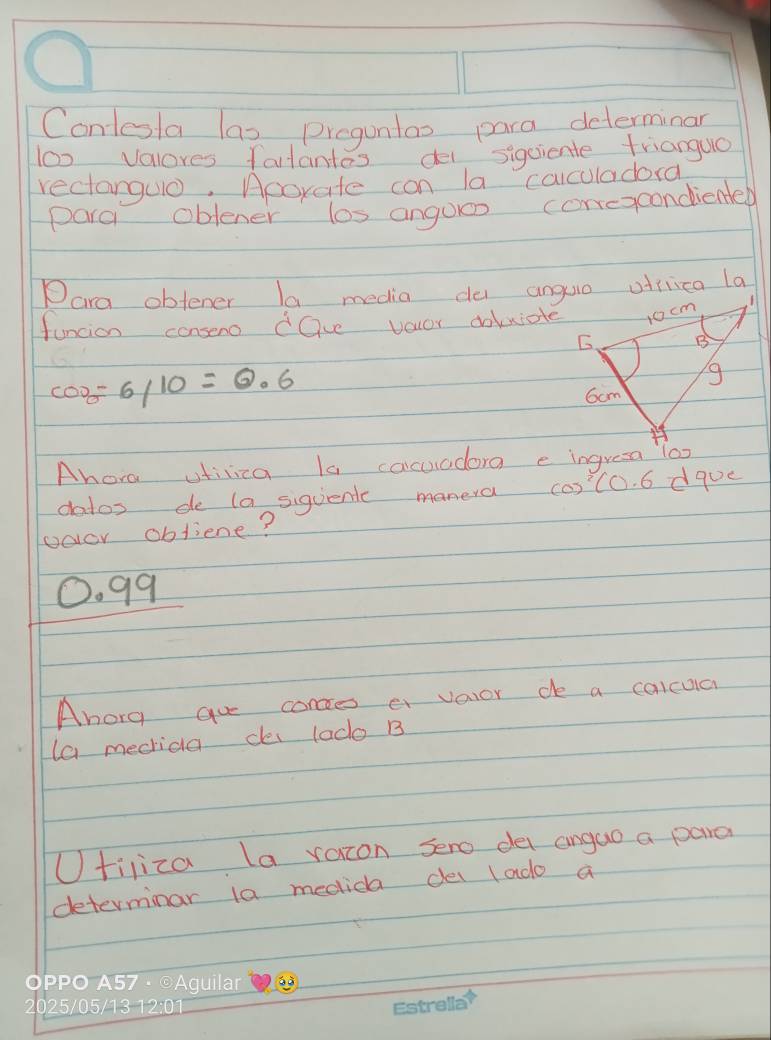 Contesta las preguntas para determinar
los valores faltantes del siguiente triangulo
rectangulo. Apoyate con la calculadora
para obtener los angulos correspondientes
Para obtener la media del angulo utiliza la
funcion conseno ¿Que valor
10cm
G
B
6cm
g
H
cos = 6/10 = 0.6
Ahora utiliza la calculadora e ingresa los
datos de la siguiente manera cos (0.6 d que
valor obtiene?
0.99
Ahora que conoces el valor de a calcula
la medida del lado B
Utiliza la razon seno del anguo a para
determinar la medida del lado a
OPPO A57 · ©Aguilar 💘🥹
2025/05/13 12:01
Estrella